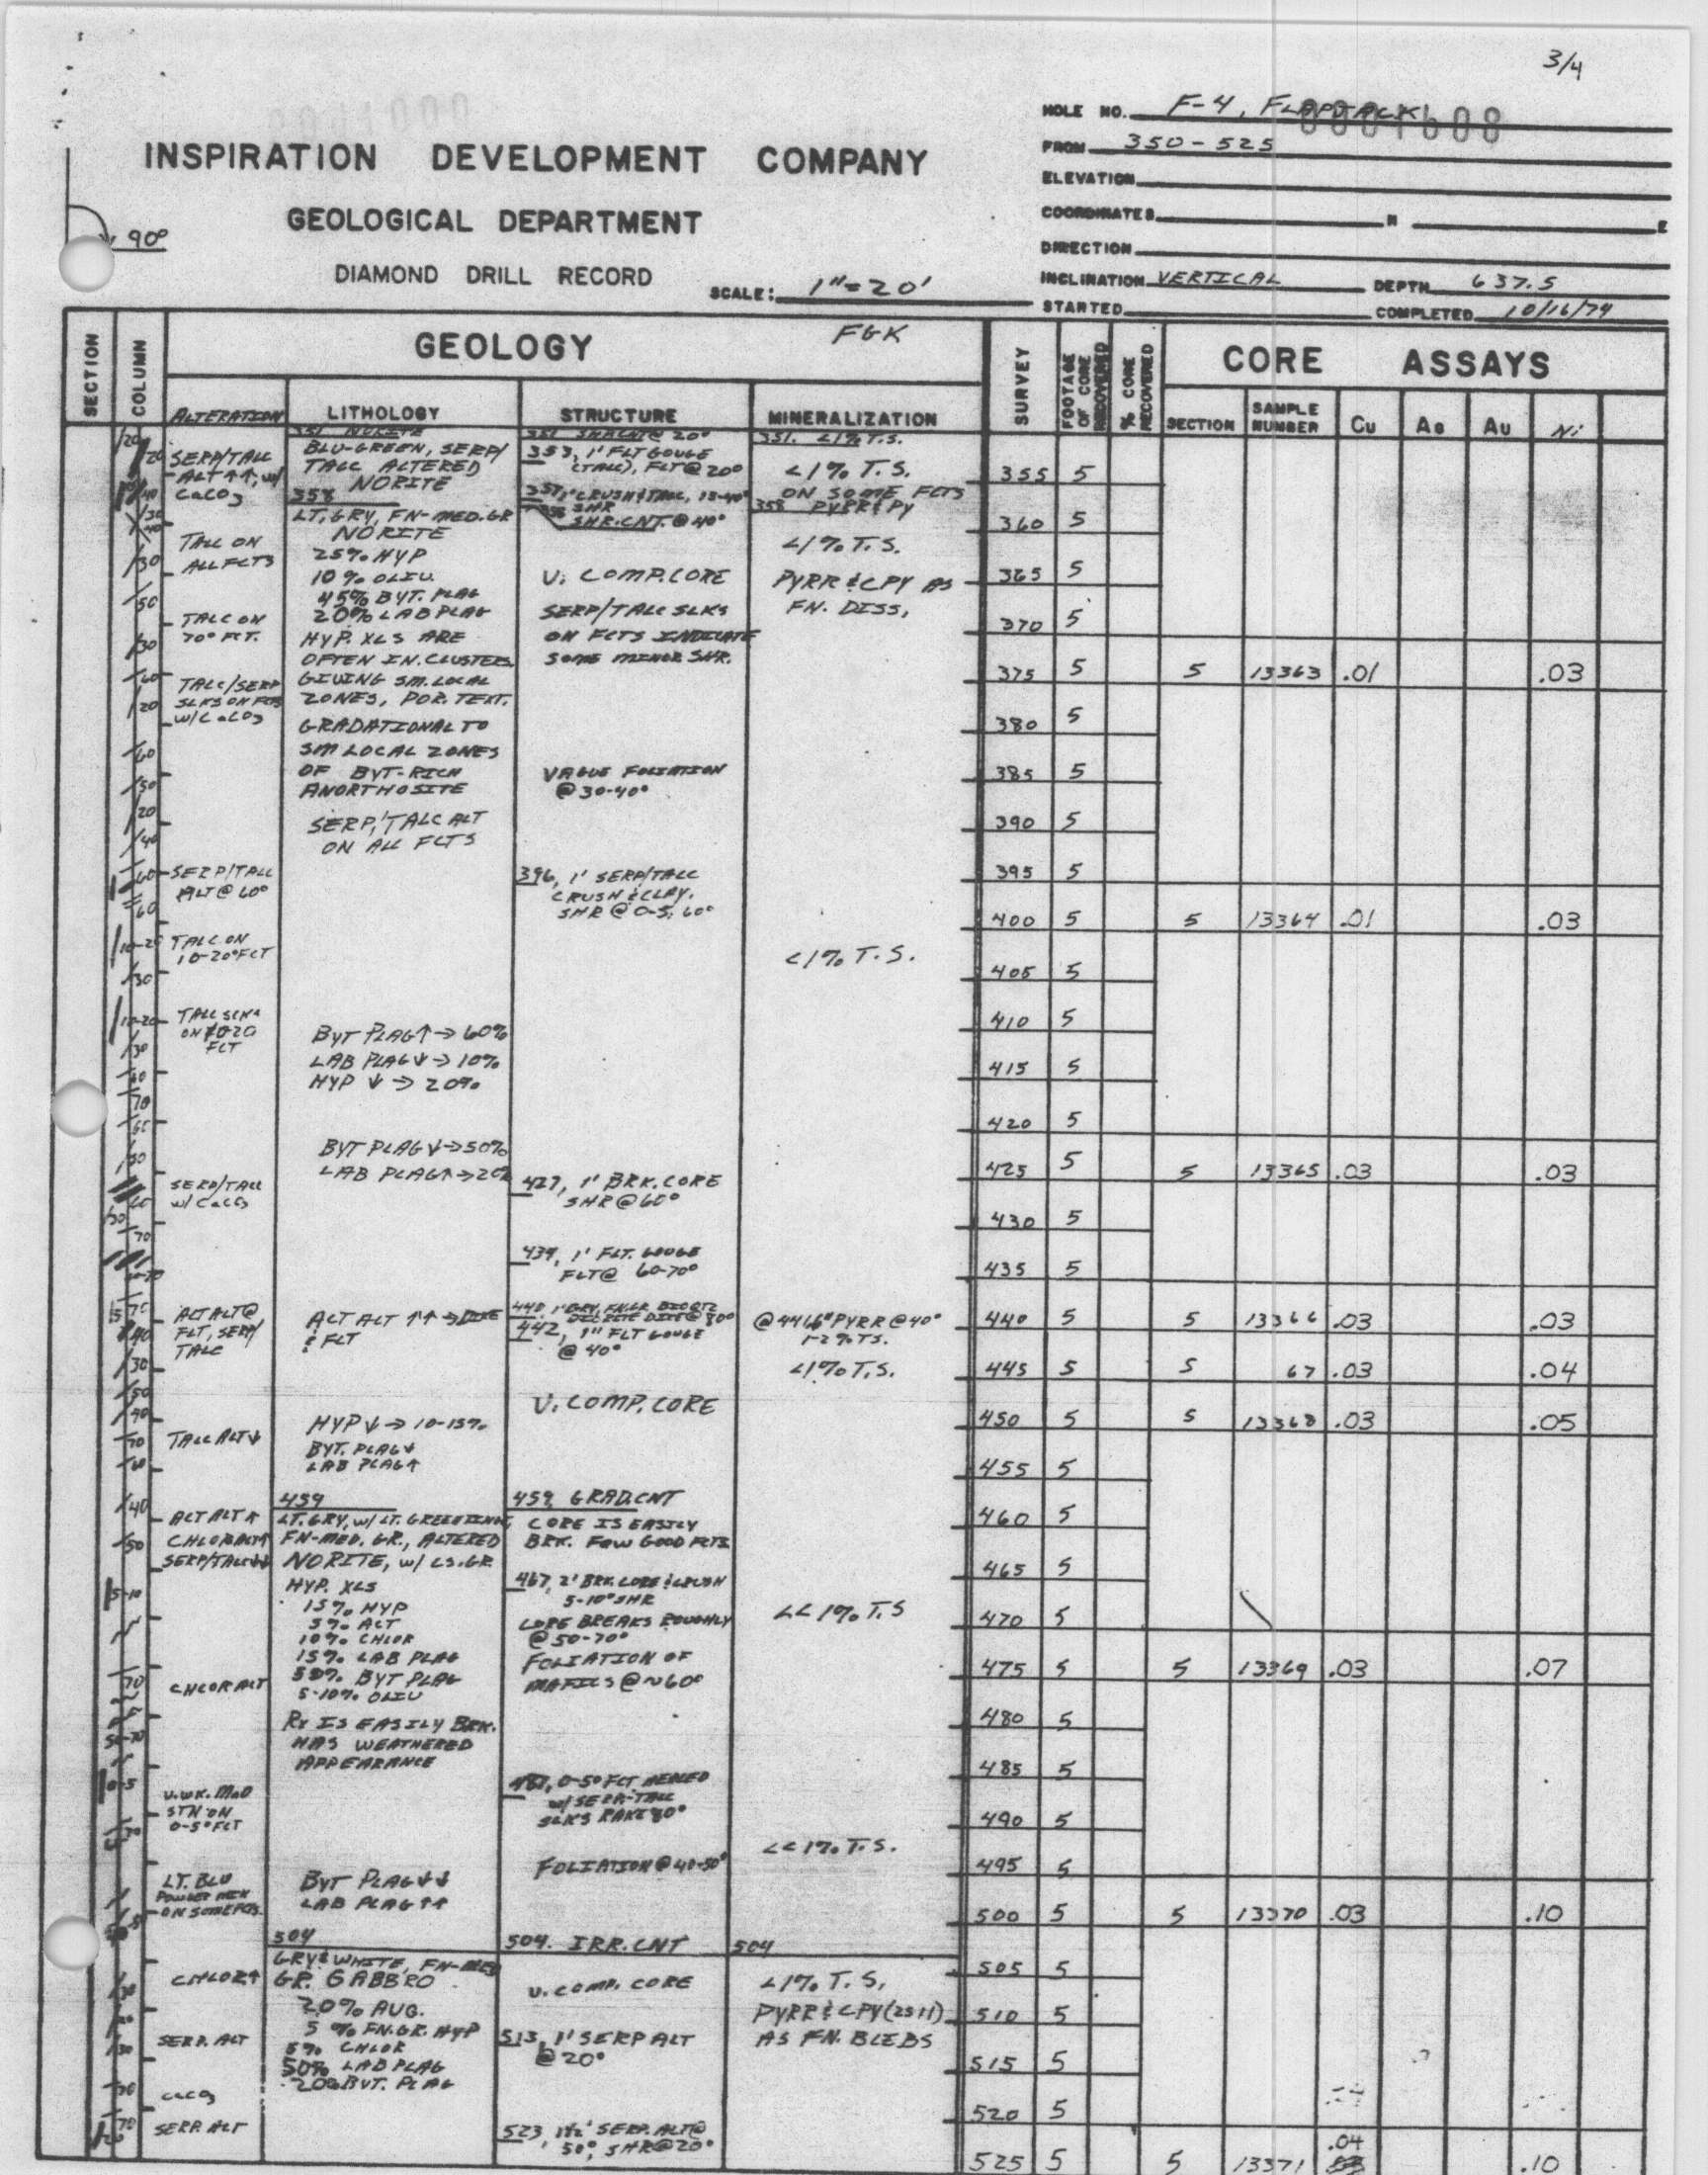 3/4
HOLE NO. F-4, FLAPJACK
0001608
FROM 350-525
ELEVATION
COORDINATES N E
DIRECTION
INCLINATION VERTICAL DEPTH 637.5
STARTED COMPLETED 10/16/74
INSPIRATION DEVELOPMENT COMPANY
GEOLOGICAL DEPARTMENT
DIAMOND DRILL RECORD
SCALE: 1"=20'
90°
SECTION
COLUMN
GEOLOGY
FGK
ALTERATION
LITHOLOGY
STRUCTURE
MINERALIZATION
SURVEY
FOOTAGE OF CORE RECOVERED
% CORE RECOVERED
CORE ASSAYS
SECTION
SAMPLE NUMBER
Cu
Ag
Au
Ni
SERP/TALC
ALT ↑↑, W/
CaCO3
TALC ON
ALL FCTS
TALC ON
70° FCT.
TALC/SERP
SLKS ON FCTS
W/CaCO3
SERP/TALC
ALT @ 60°
TALC ON
10-20° FCT
SERP/TALC
W/ CaCO3
ALT ALT @
FLT, SERP/
TALC
TALC ALT ↓
ALT ALT ↑
CHLOR ALT↑
SERP/TALC↓↓
CHLOR ALT
V. WK. MnO
STN ON
0-5° FCT
LT. BLU
CHLOR↑
SERP. ALT
CaCO3
SERP. ALT
351 NORITE
BLU-GREEN, SERP/
TALC ALTERED
NORITE
358
LT. GRY, FN-MED. GR
NORITE
25% HYP
10% OLIV.
45% BYT. PLAG
20% LAB PLAG
HYP. XLS ARE
OFTEN IN CLUSTERS
GIVING SM. LOCAL
ZONES, POR. TEXT.
GRADATIONAL TO
SM LOCAL ZONES
OF BYT-RICH
ANORTHOSITE
SERP/TALC ALT
ON ALL FCTS
BYT PLAG↑→60%
LAB PLAG↓→10%
HYP ↓→20%
BYT PLAG↓→50%
LAB PLAG↑→20%
ALT ALT ↑↑ → DIKE
& FLT
HYP↓→10-15%
BYT. PLAG↓
LAB PLAG↑
459
LT. GRY, W/ LT. GREEN TINGE
FN-MED. GR., ALTERED
NORITE, W/ CS. GR
HYP. XLS
15% HYP
5% ALT
10% CHLOR
15% LAB PLAG
50% BYT PLAG
5-10% OLIV
RX IS EASILY BRK.
HAS WEATHERED
APPEARANCE
BYT PLAG↓↓
LAB PLAG↑↑
504
GRY & WHITE, FN-MED
GR. GABBRO
20% AUG.
5% FN. GR. HYP
5% CHLOR
50% LAB PLAG
20% BYT. PLAG
351 SHR CNT @ 20°
353, 1' FLT GOUGE
(TALC), FLT @ 20°
SHR. CNT. @ 40°
V. COMP. CORE
SERP/TALC SLKS
ON FCTS INDICATE
SOME MINOR SHR.
VAGUE FOLIATION
@ 30-40°
396, 1' SERP/TALC
CRUSH & CLAY.
SHR @ 0-5, 60°
427, 1' BRK. CORE
SHR @ 60°
434, 1' FLT. GOUGE
FLT @ 60-70°
442, 1" FLT GOUGE
@ 40°
V. COMP. CORE
459, GRAD. CNT
CORE IS EASILY
BRK. FEW GOOD FCTS
467, 2' BRK. CORE & CRUSH
5-10° SHR
CORE BREAKS ROUGHLY
@ 50-70°
FOLIATION OF
MAFICS @ ~60°
487, 0-5° FCT HEALED
W/ SERP-TALC
SLKS RAKE 80°
FOLIATION @ 40-50°
504. IRR. CNT
V. COMP. CORE
513, 1' SERP ALT
@ 20°
523, 1½' SERP. ALT @
50°, SHR @ 20°
351. <1% T.S.
<1% T.S.
ON SOME FCTS
358 PYRR & PY
<1% T.S.
PYRR & CPY AS
FN. DISS,
<1% T.S.
1-2% T.S.
<1% T.S.
<<1% T.S
<<1% T.S.
504
<1% T.S.
PYRR & CPY (2:1)
AS FN. BLEBS
355 5
360 5
365 5
370 5
375 5 5 13363 .01 .03
380 5
385 5
390 5
395 5
400 5 5 13364 .01 .03
405 5
410 5
415 5
420 5
425 5 5 13365 .03 .03
430 5
435 5
440 5 5 13366 .03 .03
445 5 5 67 .03 .04
450 5 5 13368 .03 .05
455 5
460 5
465 5
470 5
475 5 5 13369 .03 .07
480 5
485 5
490 5
495 5
500 5 5 13370 .03 .10
505 5
510 5
515 5
520 5
525 5 5 13371 .04 .10